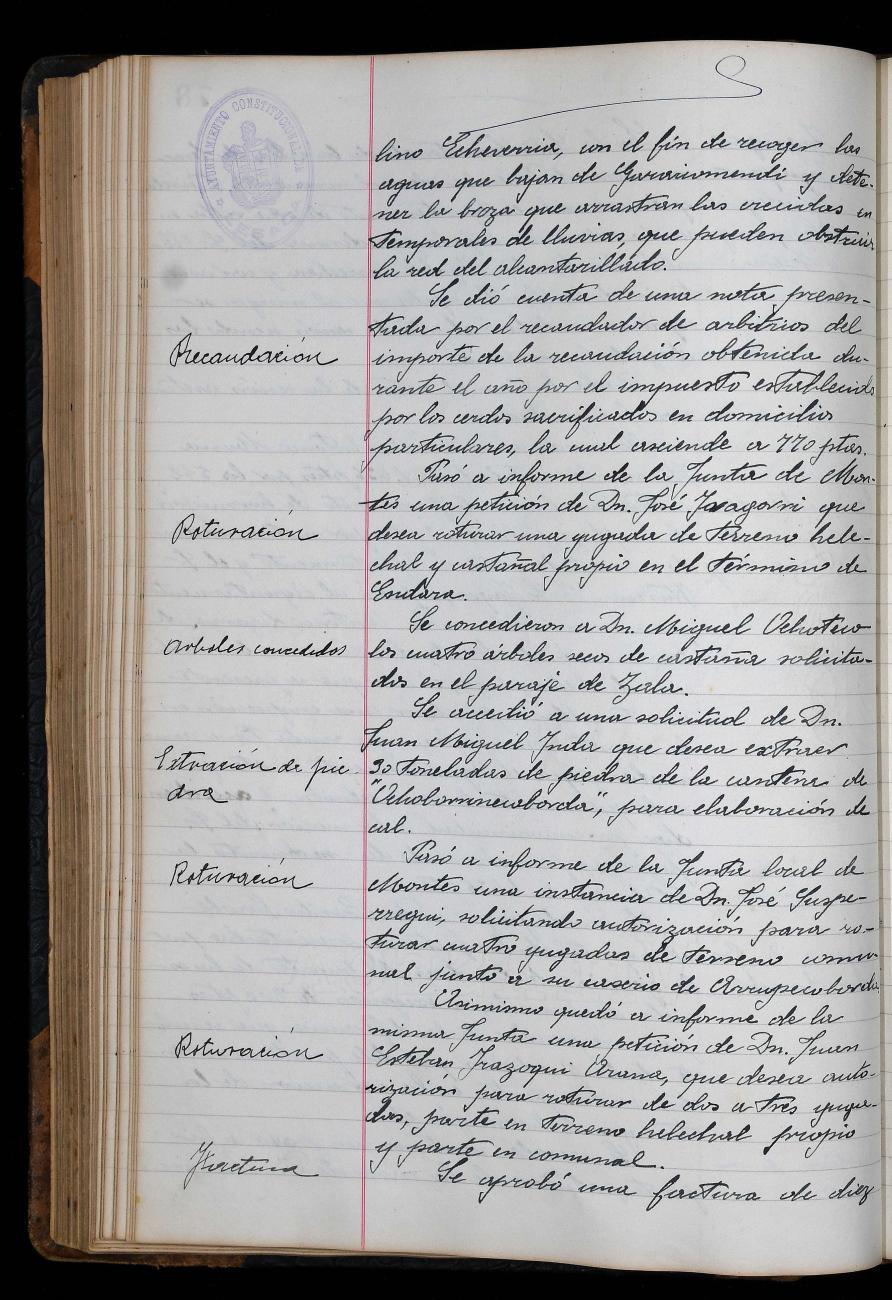 AYUNTAMIENTO CONSTITUCIONAL
LESACA
lino Echeverria, con el fin de recoger las
aguas que bajan de Garaiomendi y dete-
ner la broza que arrastran las crecidas en
temporales de lluvias, que pueden obstruir
la red del alcantarillado.
Se dió cuenta de una nota presen-
tada por el recaudador de arbitrios del
Recaudación
importe de la recaudación obtenida du-
rante el año por el impuesto establecido
por los cerdos sacrificados en domicilios
particulares, la cual asciende a 770 ptas.
Pasó a informe de la Junta de Mon-
tes una petición de Dn. José que
Roturación
desea roturar una yugada de terreno hele-
chal y castañal propio en el término de
Endara.
Se concedieron a Dn. Miguel Ochoteco
Arboles concedidos
los cuatro árboles secos de castaña solicita-
dos en el paraje de Zala.
Se accedió a una solicitud de Dn.
Juan Miguel Inda que desea extraer
Extracción de pie-
dra
30 toneladas de piedra de la cantera de
"Ochoborrinecoborda", para elaboración de
cal.
Pasó a informe de la Junta local de
Roturación
Montes una instancia de Dn. José Suspe-
rregui, solicitando autorización para ro-
turar cuatro yugadas de terreno comu-
nal junto a su caserio de Arrupecoborda.
Asimismo quedó a informe de la
misma Junta una petición de Dn. Juan
Roturación
Esteban Irazoqui Arana, que desea auto-
rización para roturar de dos a tres yuga-
das, parte en terreno helechal propio
y parte en comunal.
Factura
Se aprobó una factura de diez